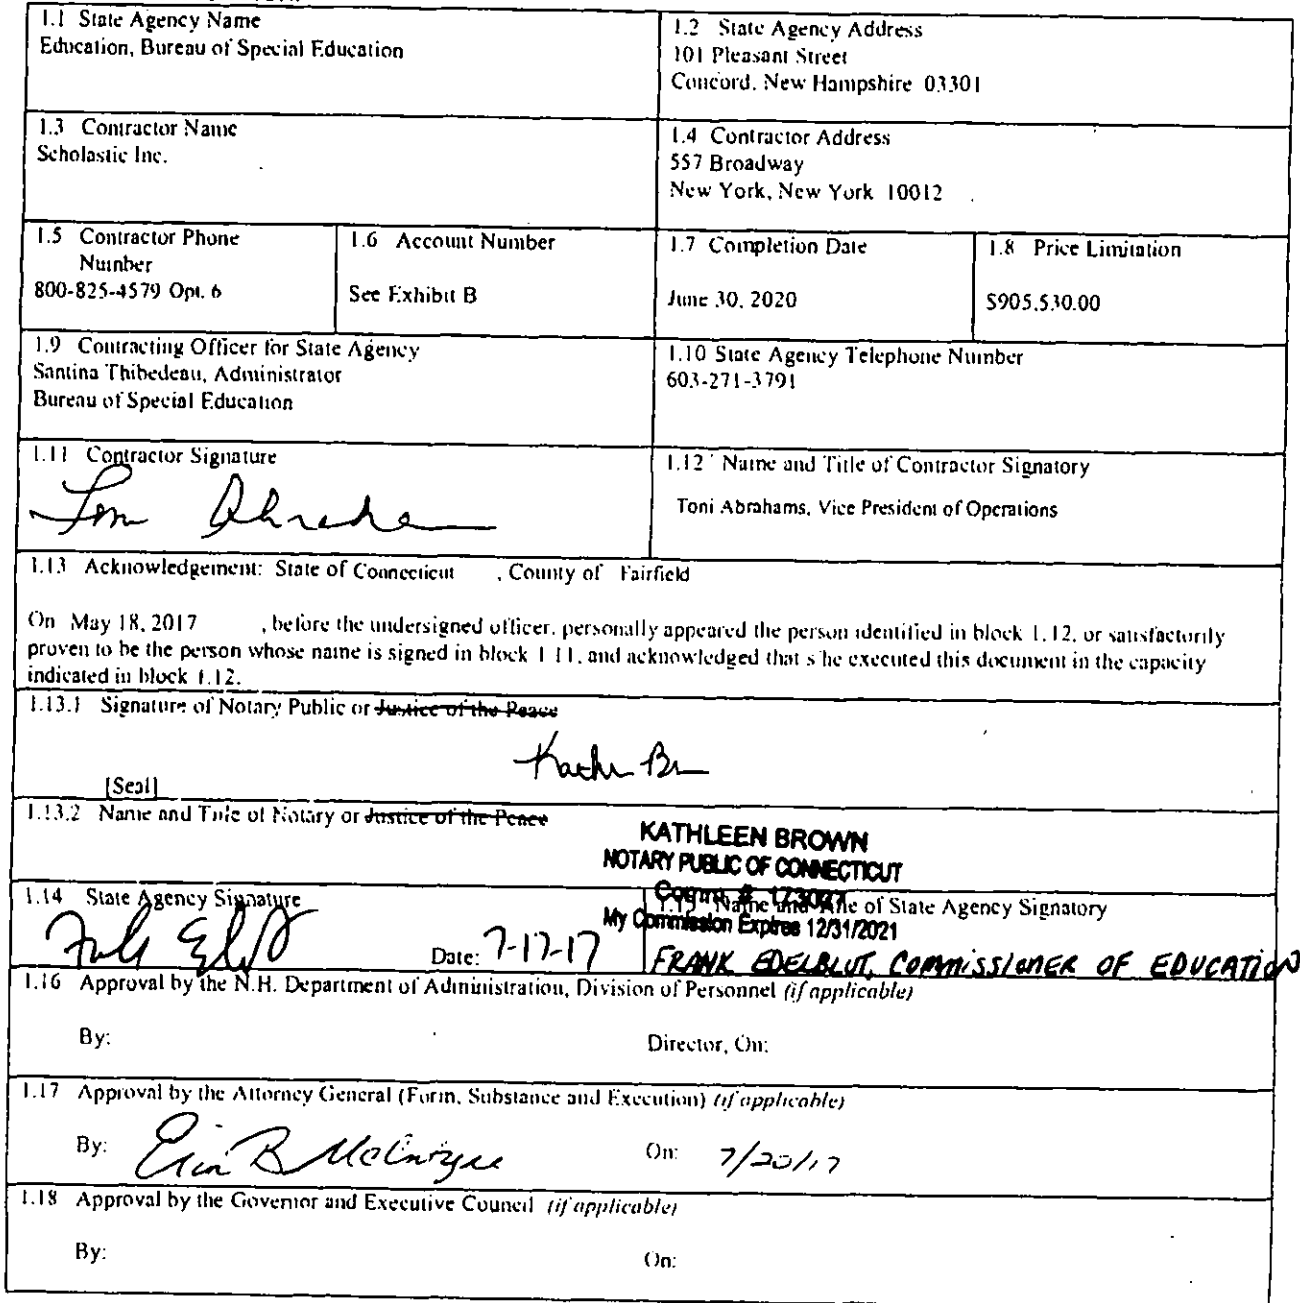 1.1 State Agency Name
Education, Bureau of Special Education
1.2 State Agency Address
101 Pleasant Street
Concord, New Hampshire 03301
1.3 Contractor Name
Scholastic Inc.
1.4 Contractor Address
557 Broadway
New York, New York 10012
1.5 Contractor Phone
Number
800-825-4579 Opt. 6
1.6 Account Number
See Exhibit B
1.7 Completion Date
June 30, 2020
1.8 Price Limitation
$905,530.00
1.9 Contracting Officer for State Agency
Santina Thibedeau, Administrator
Bureau of Special Education
1.10 State Agency Telephone Number
603-271-3791
1.11 Contractor Signature
1.12 Name and Title of Contractor Signatory
Toni Abrahams, Vice President of Operations
1.13 Acknowledgement: State of Connecticut , County of Fairfield
On May 18, 2017 , before the undersigned officer, personally appeared the person identified in block 1.12, or satisfactorily
proven to be the person whose name is signed in block 1.11, and acknowledged that s/he executed this document in the capacity
indicated in block 1.12.
1.13.1 Signature of Notary Public or Justice of the Peace
[Seal]
1.13.2 Name and Title of Notary or Justice of the Peace
KATHLEEN BROWN
NOTARY PUBLIC OF CONNECTICUT
Comm. #
My Commission Expires 12/31/2021
1.14 State Agency Signature
Date: 7-17-17
1.15 Name and Title of State Agency Signatory
FRANK EDELBLUT, COMMISSIONER OF EDUCATION
1.16 Approval by the N.H. Department of Administration, Division of Personnel (if applicable)
By:
Director, On:
1.17 Approval by the Attorney General (Form, Substance and Execution) (if applicable)
By:
On: 7/20/17
1.18 Approval by the Governor and Executive Council (if applicable)
By:
On: